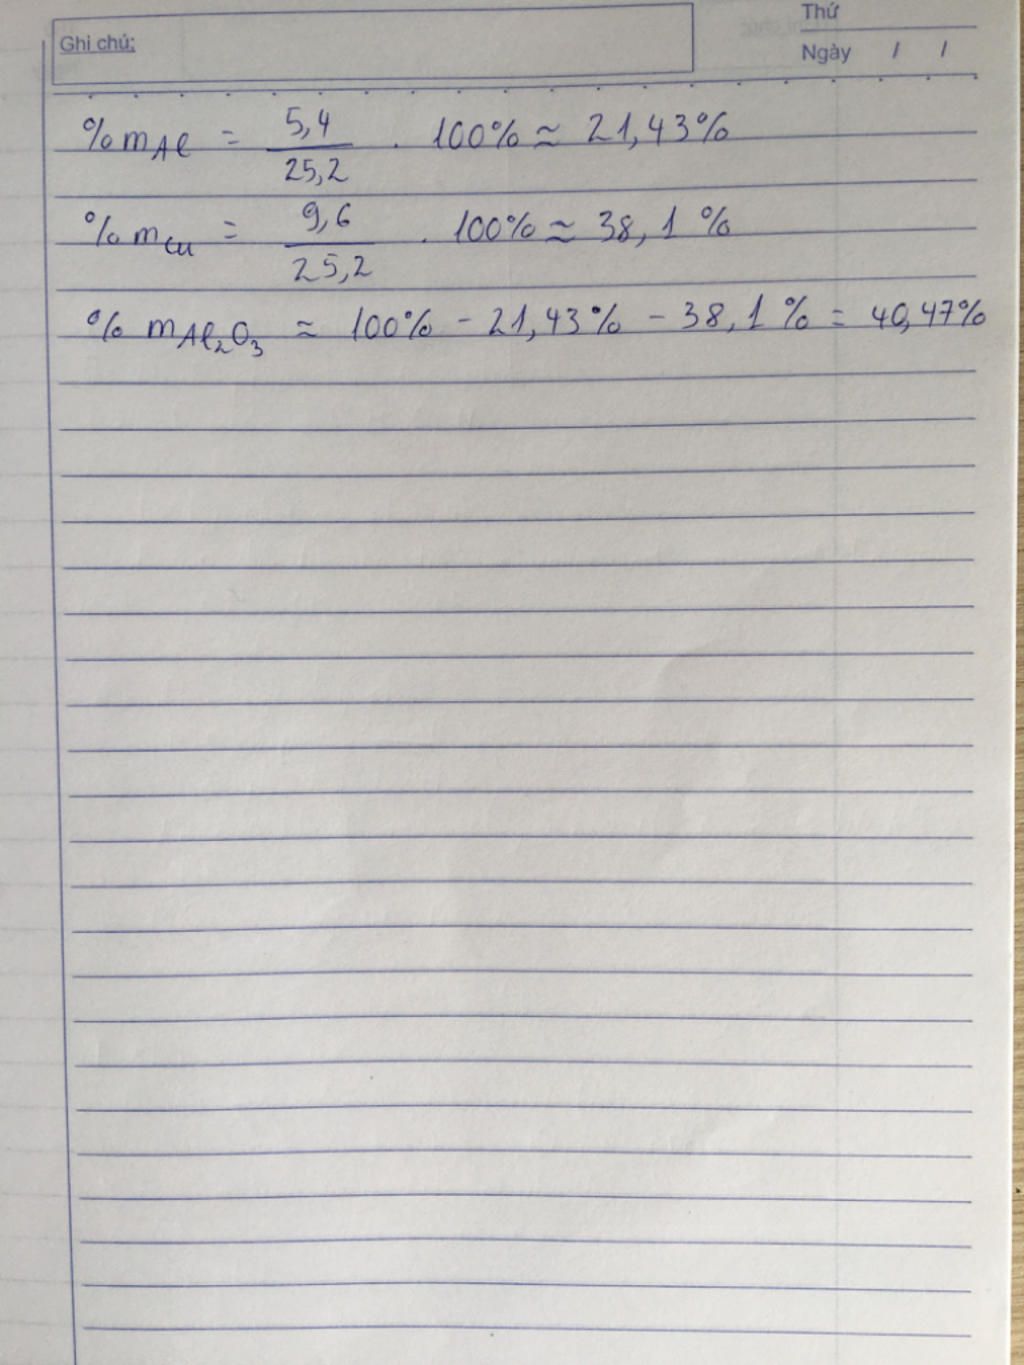 Thứ
Ghi chú:
Ngày / /
%mAl = 5,4/25,2 . 100% ≈ 21,43%
%mCu = 9,6/25,2 . 100% ≈ 38,1%
%mAl₂O₃ ≈ 100% - 21,43% - 38,1% = 40,47%